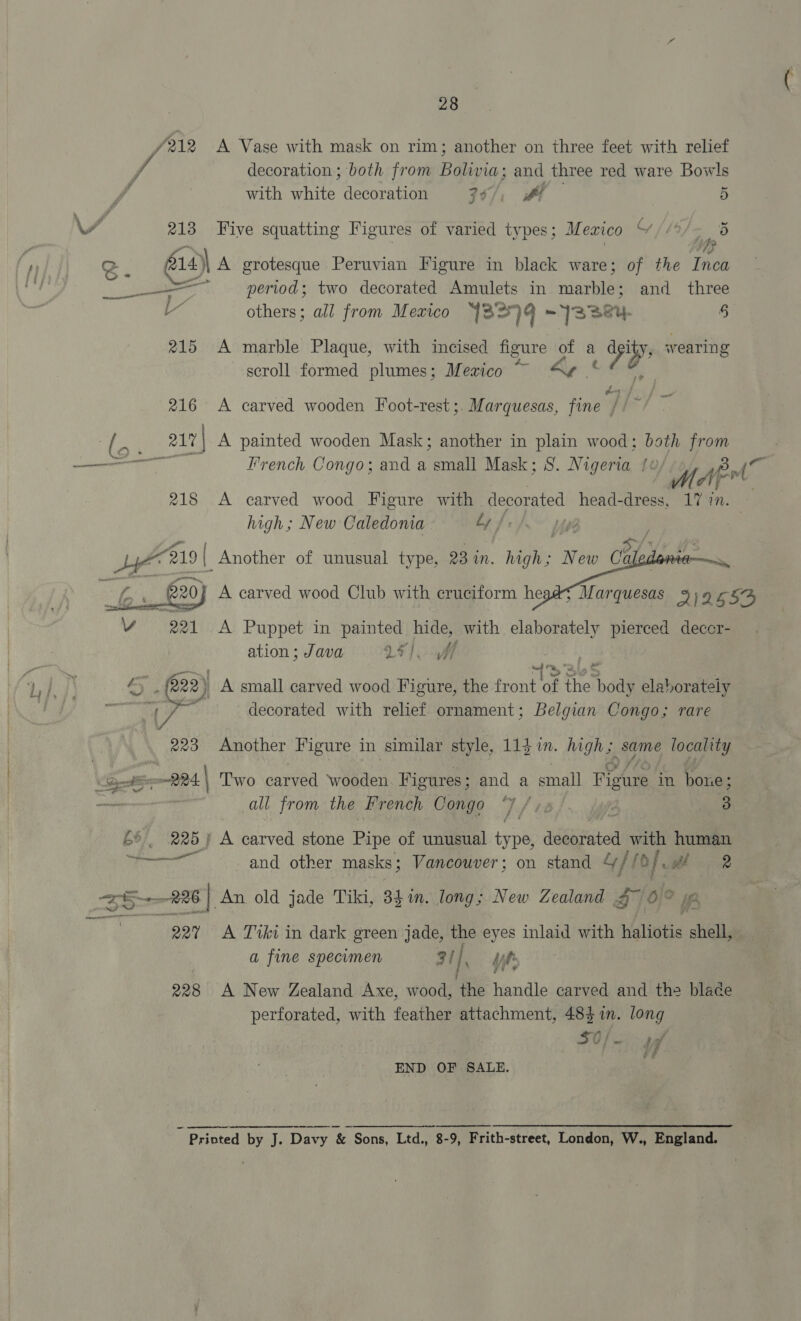 28
212 A Vase with mask on rim; another on three feet with relief
decoration; both from Bolivia; and three red ware Bowls
with white decoration 5
213 Five squatting Figures of varied types; Mexico 5
214 A grotesque Peruvian Figure in black ware; of the Inca
period; two decorated Amulets in marble; and three
others; all from Mexico 6
215 A marble Plaque, with incised figure of a deity, wearing
scroll formed plumes; Mexico
216 A carved wooden Foot-rest; Marquesas, fine
217 A painted wooden Mask; another in plain wood; both from
French Congo; and a small Mask; S. Nigeria 3
218 A carved wood Figure with decorated head-dress, 17 in.
high; New Caledonia
219 Another of unusual type, 23 in. high; New Caledonia
220 A carved wood Club with cruciform head; Marquesas
221 A Puppet in painted hide, with elaborately pierced decor-
ation; Java
222 A small carved wood Figure, the front of the body elaborately
decorated with relief ornament; Belgian Congo; rare
223 Another Figure in similar style, 11½ in. high; same locality
224 Two carved wooden Figures; and a small Figure in bone;
all from the French Congo 3
225 A carved stone Pipe of unusual type, decorated with human
and other masks; Vancouver; on stand 2
226 An old jade Tiki, 3½ in. long; New Zealand
227 A Tiki in dark green jade, the eyes inlaid with haliotis shell,
a fine specimen
228 A New Zealand Axe, wood, the handle carved and the blade
perforated, with feather attachment, 48½ in. long
END OF SALE.
Printed by J. Davy & Sons, Ltd., 8-9, Frith-street, London, W., England.